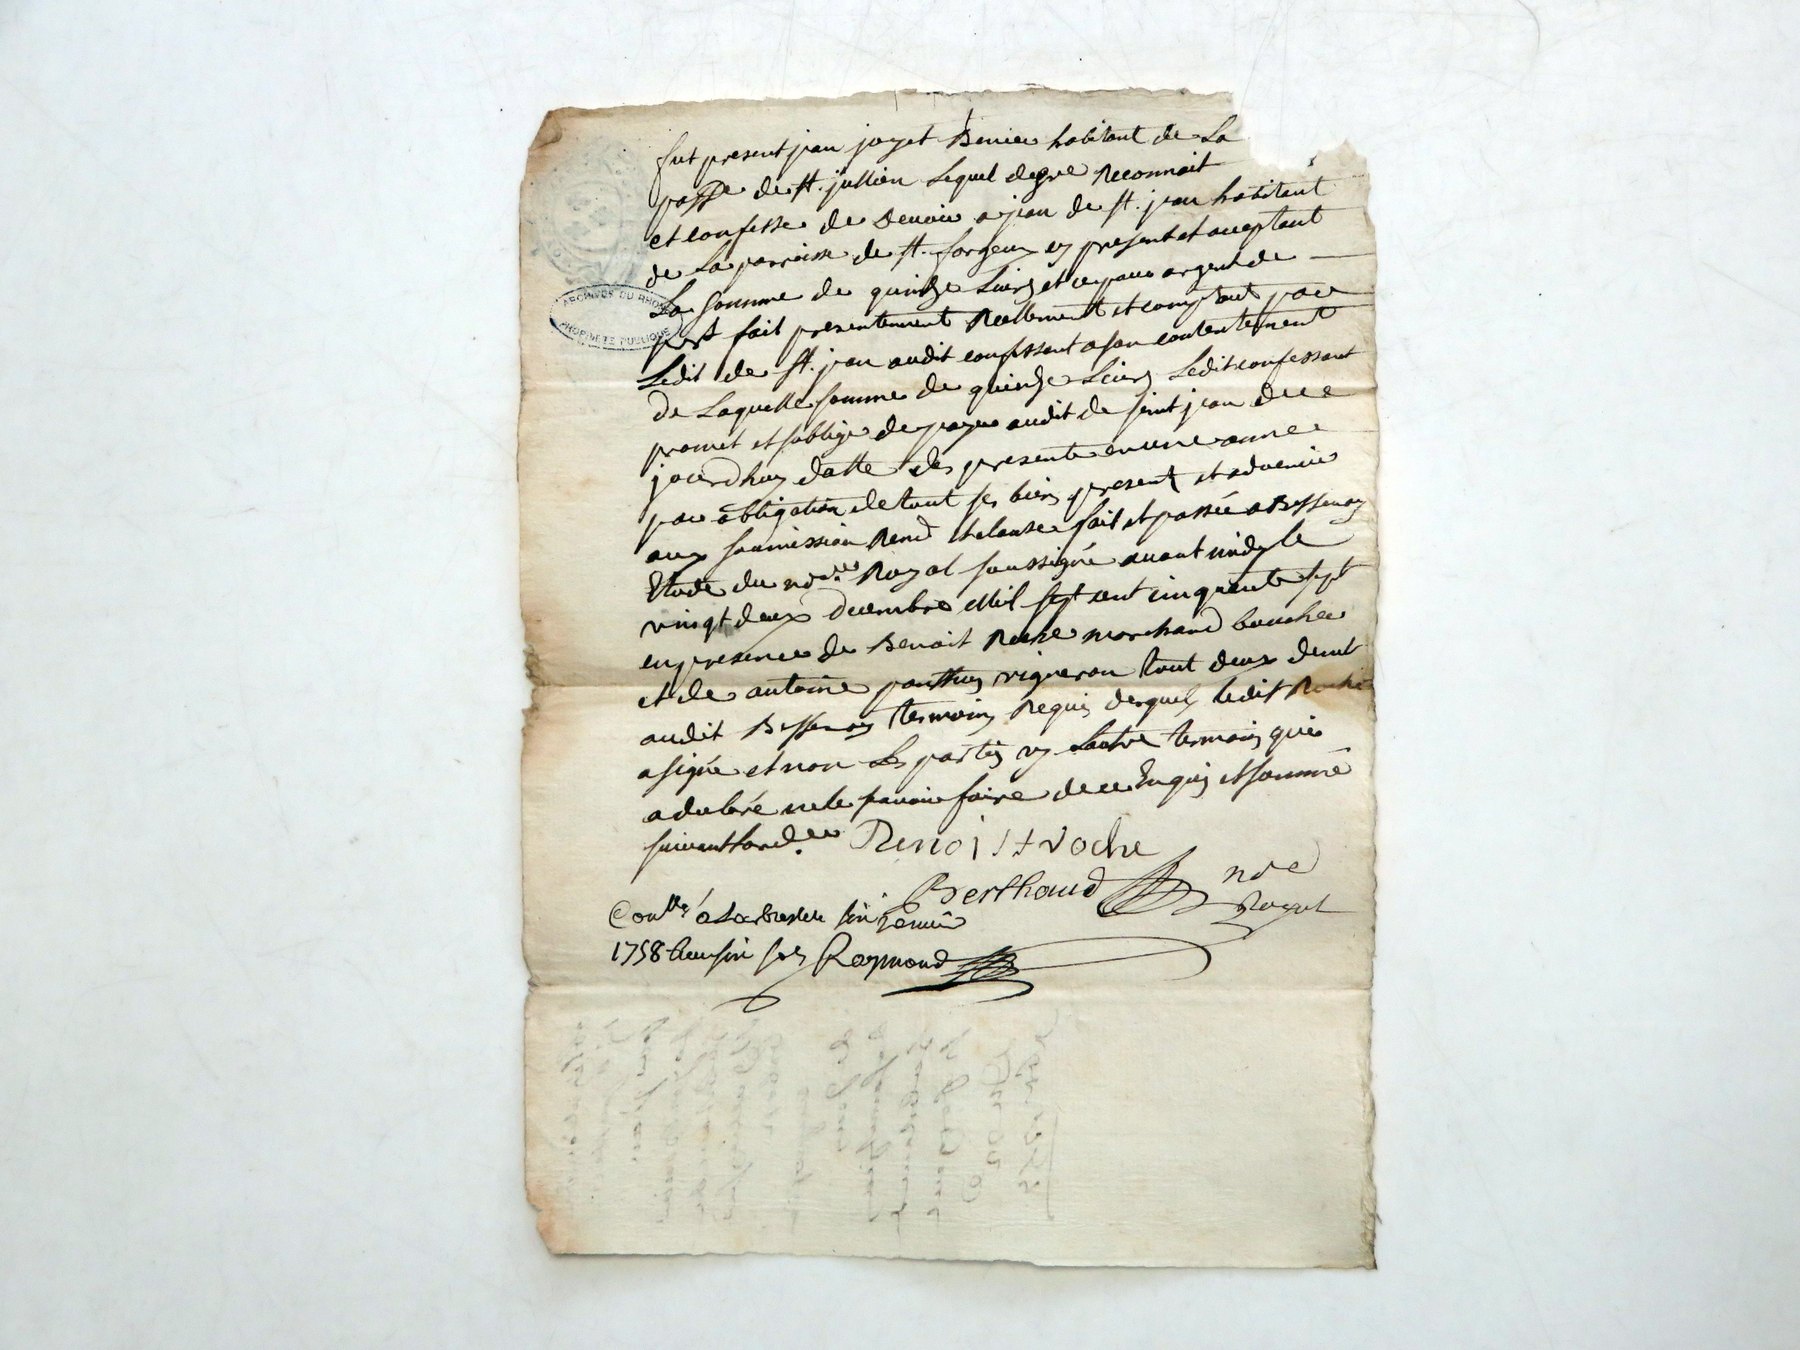 fut present jean joyet Benier habitant de La
paffe de st. jullien Lequel degre Reconnait
et confesse de Devoir a jean de st. jean habitant
de La parroisse de st. forgeux cy present et acceptant
La somme de quinze Livres et ce pour argent de
prest fait presentement Reellement et comptant par
Ledit de st. jean audit confessant a son contentement
De Laquelle somme de quinze Livres Ledit confessant
promet et soblige de payer audit de feint jean de ce
jourdhuy datte des presente en une année
par obligation de tout ses biens present et advenir
aux soumission Renond et clause fait et passée a Bessenay
Etude du nore Royal soussigné avant midy le
vingt deux decembre Mil sept cent cinquante sept
en presence de Benoit Roche marchand boucher
et de antoine vigneron tout deux demt
audit Bessenay temoins Requis desquels ledit Roche
a signé et non Les parties ny Lautre temoins qui
a declaré ne le scavoir faire de ce Enquis et sommé
suivant Lord.ce Benoist roche
Berthaud nre
Royal
Conllé a Larbresle le cinq janvier
1758 Reçu six sols Raymond
ARCHIVES DU RHONE
PROPRIETE PUBLIQUE